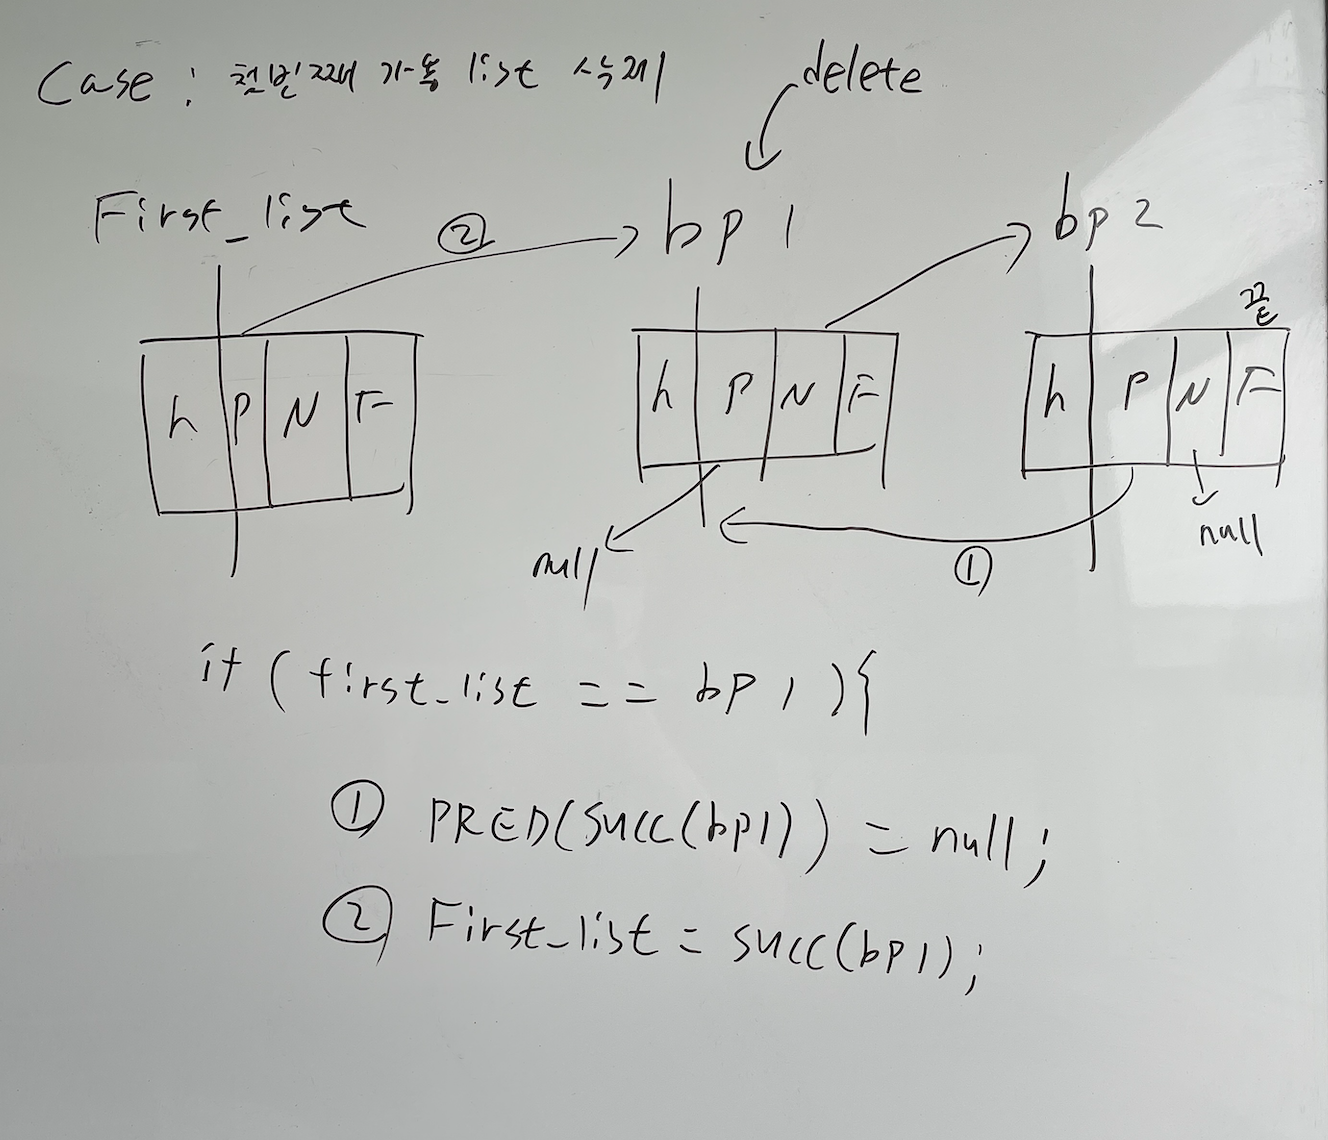 Case : 첫번째 가용 list 삭제
delete
First_list
② bp 1
bp 2
끝
h P N F
h P N F
h P N F
null
①
null
if ( first_list == bp 1 ){
① PRED(SUCC(bp1)) = null;
② First_list = succ(bp1);